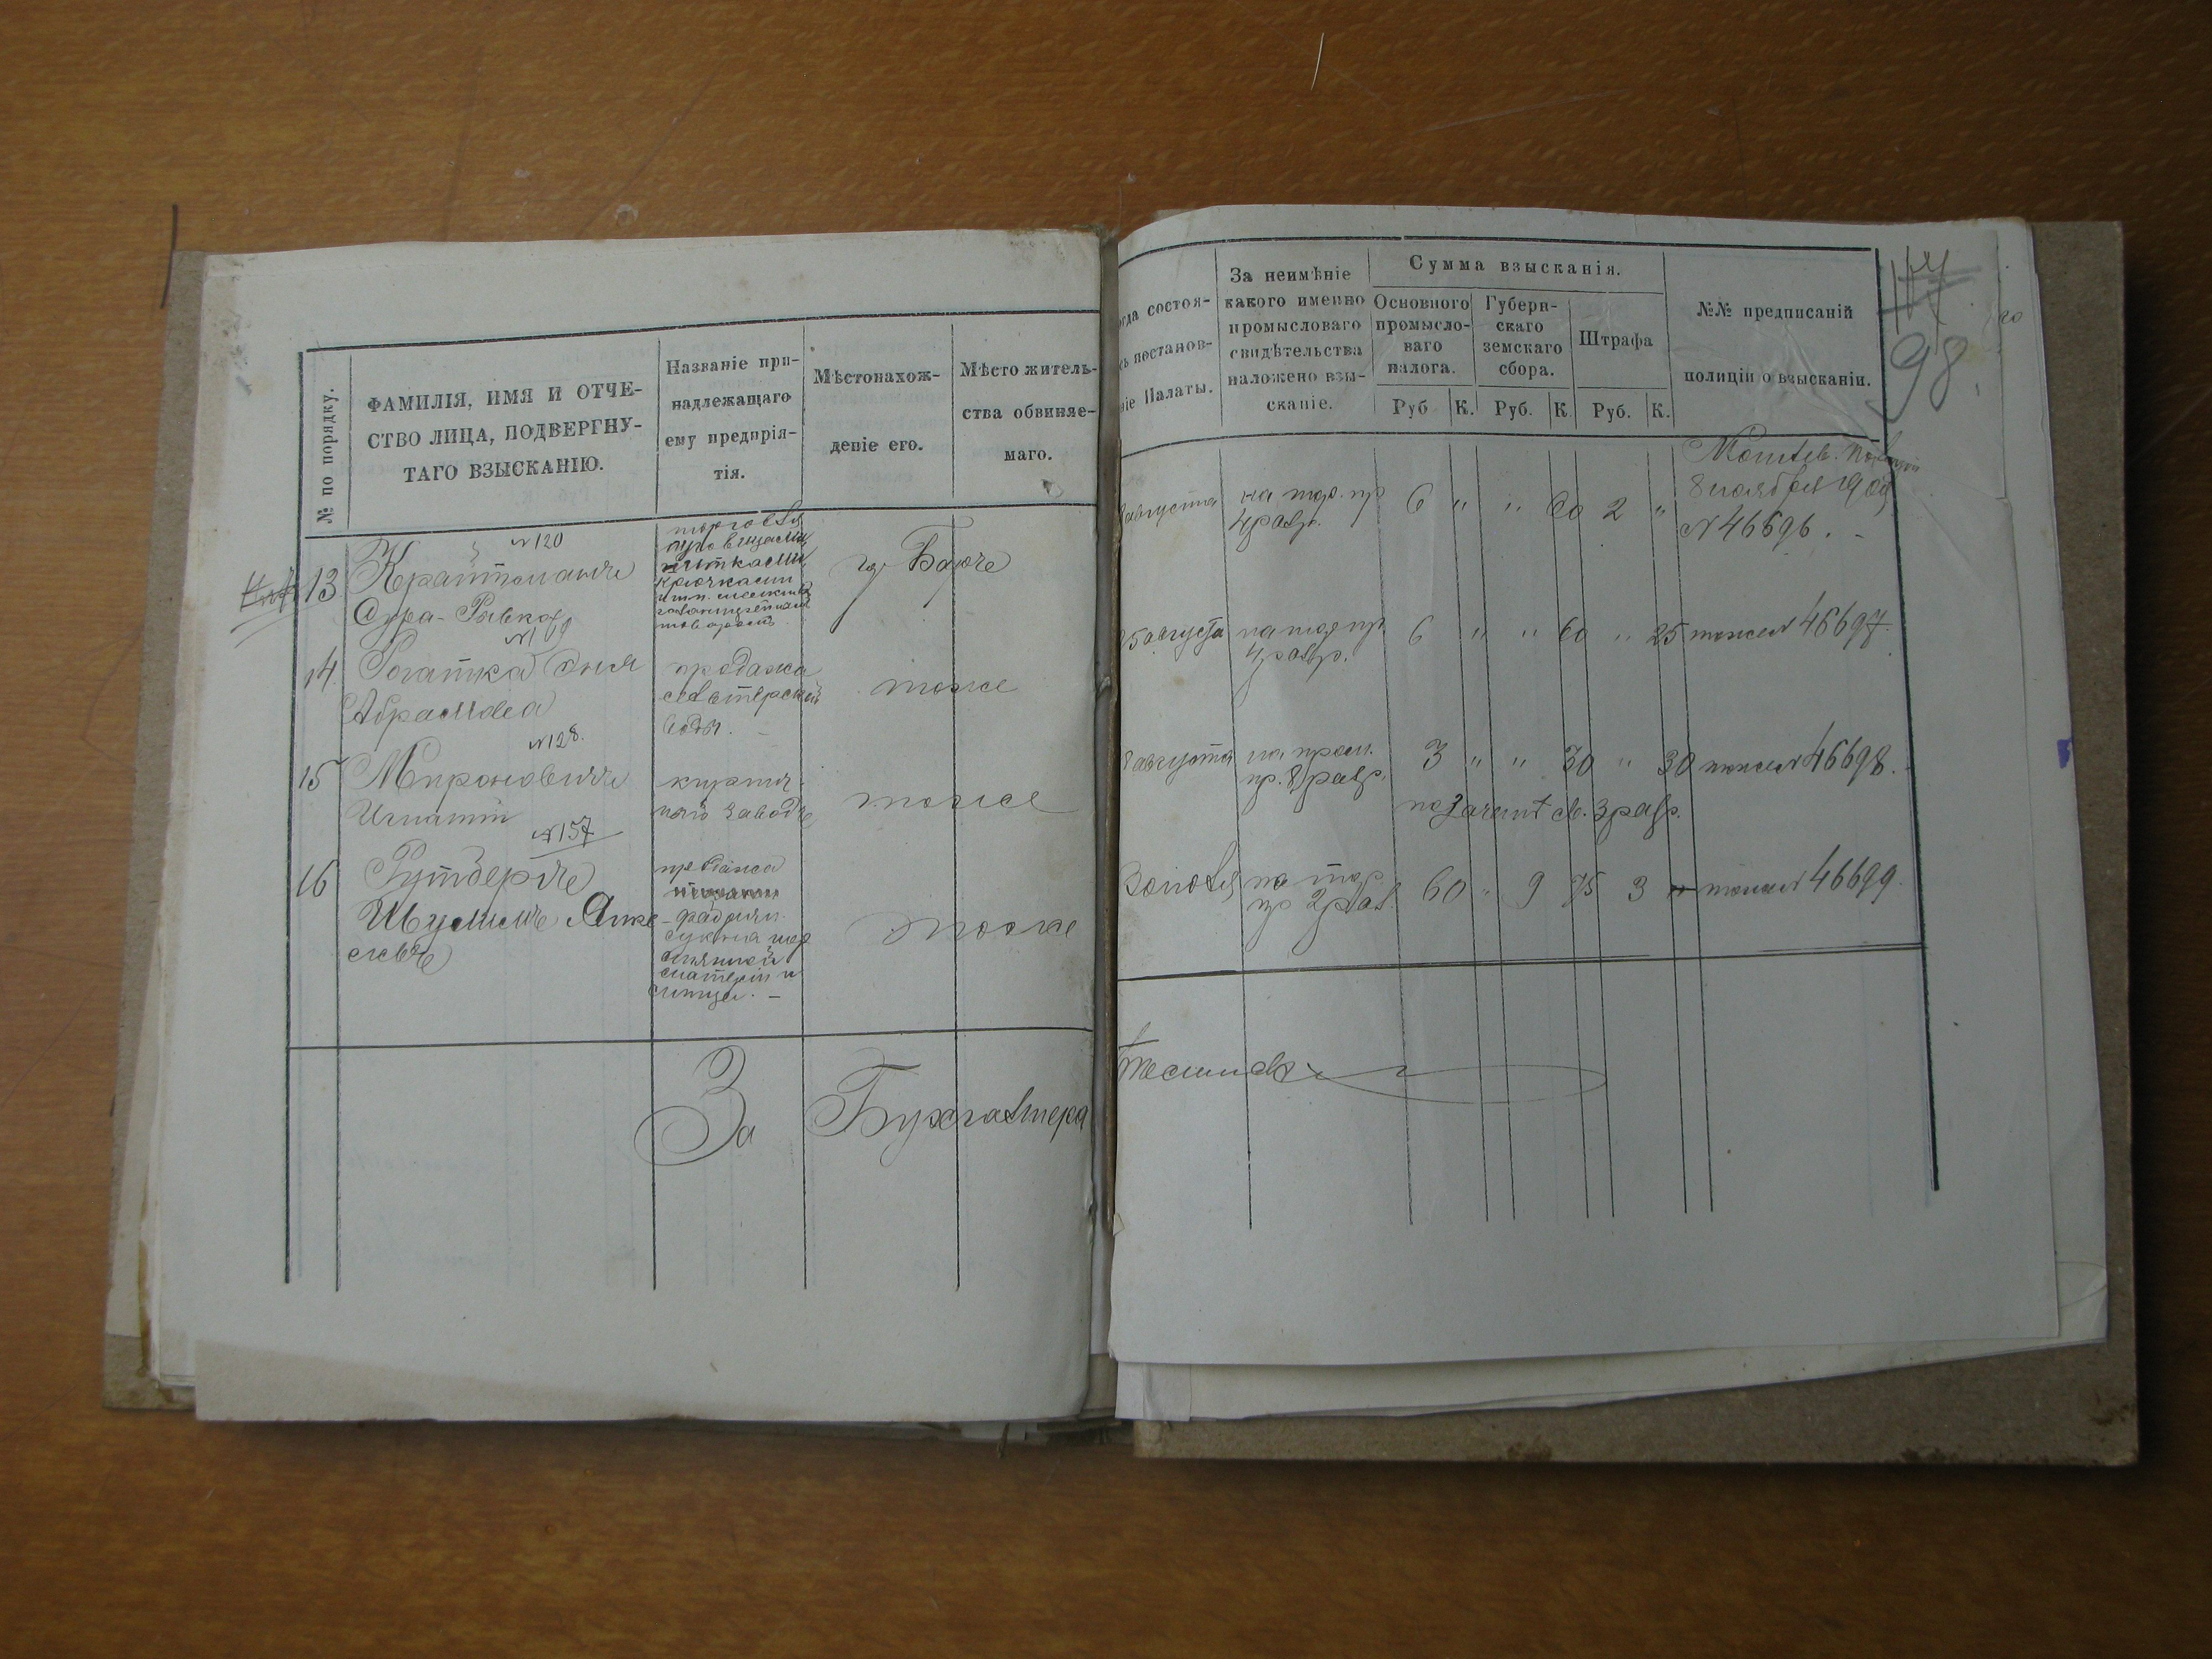 № по порядку.
ФАМИЛІЯ, ИМЯ И ОТЧЕ-
СТВО ЛИЦА, ПОДВЕРГНУ-
ТАГО ВЗЫСКАНІЮ.
Названіе при-
надлежащаго
ему предпрія-
тія.
Мѣстонахож-
деніе его.
Мѣсто житель-
ства обвиняе-
маго.
№120
13
Крайтманъ
Сура-Ривка
торговля
пуговицами,
нитками,
крючками
и т.п. мелкимъ
галантерейным
товаромъ.
гор. Баръ
№169
14
Рогатка Эня
Абрамова
продажа
сельтерской
воды.
тоже
№128.
15
Мироновичъ
Игнатій
кирпич-
ный заводъ
тоже
№157
16
Рутбергъ
Шулимъ Анке
левъ
продажа
сукна шер
стянной
матеріи и
ситца. –
тоже
За Бухгалтера
огда состоя-
ь постанов-
ніе Палаты.
За неимѣніе
какого именно
промысловаго
свидѣтельства
наложено взы-
сканіе.
Сумма взысканія.
Основного
промысло-
ваго
налога.
Губерн-
скаго
земскаго
сбора.
Штрафа
Руб К. Руб. К. Руб. К.
№№ предписаній
полиціи о взысканіи.
98
августа
на тор. пр
4 разр.
6 " " 60 2 "
8 ноября 1909
№ 46696. -
25 августа
на тор пр
4 разр.
6 " " 60 " 25 тоже № 46697.
8 августа
на пром.
пр. 8 разр.
3 " " 30 " 30 тоже № 46698.
3 разр.
30 іюля
на тор.
пр 2 раз.
60 " 9 75 3 " тоже № 46699.